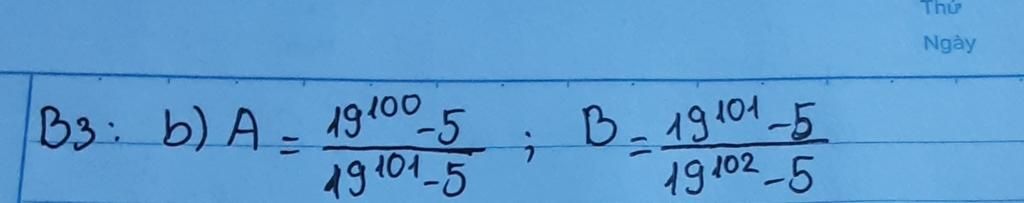 Thứ
Ngày
B3: b) A = \frac{19^{100}-5}{19^{101}-5} ; B = \frac{19^{101}-5}{19^{102}-5}